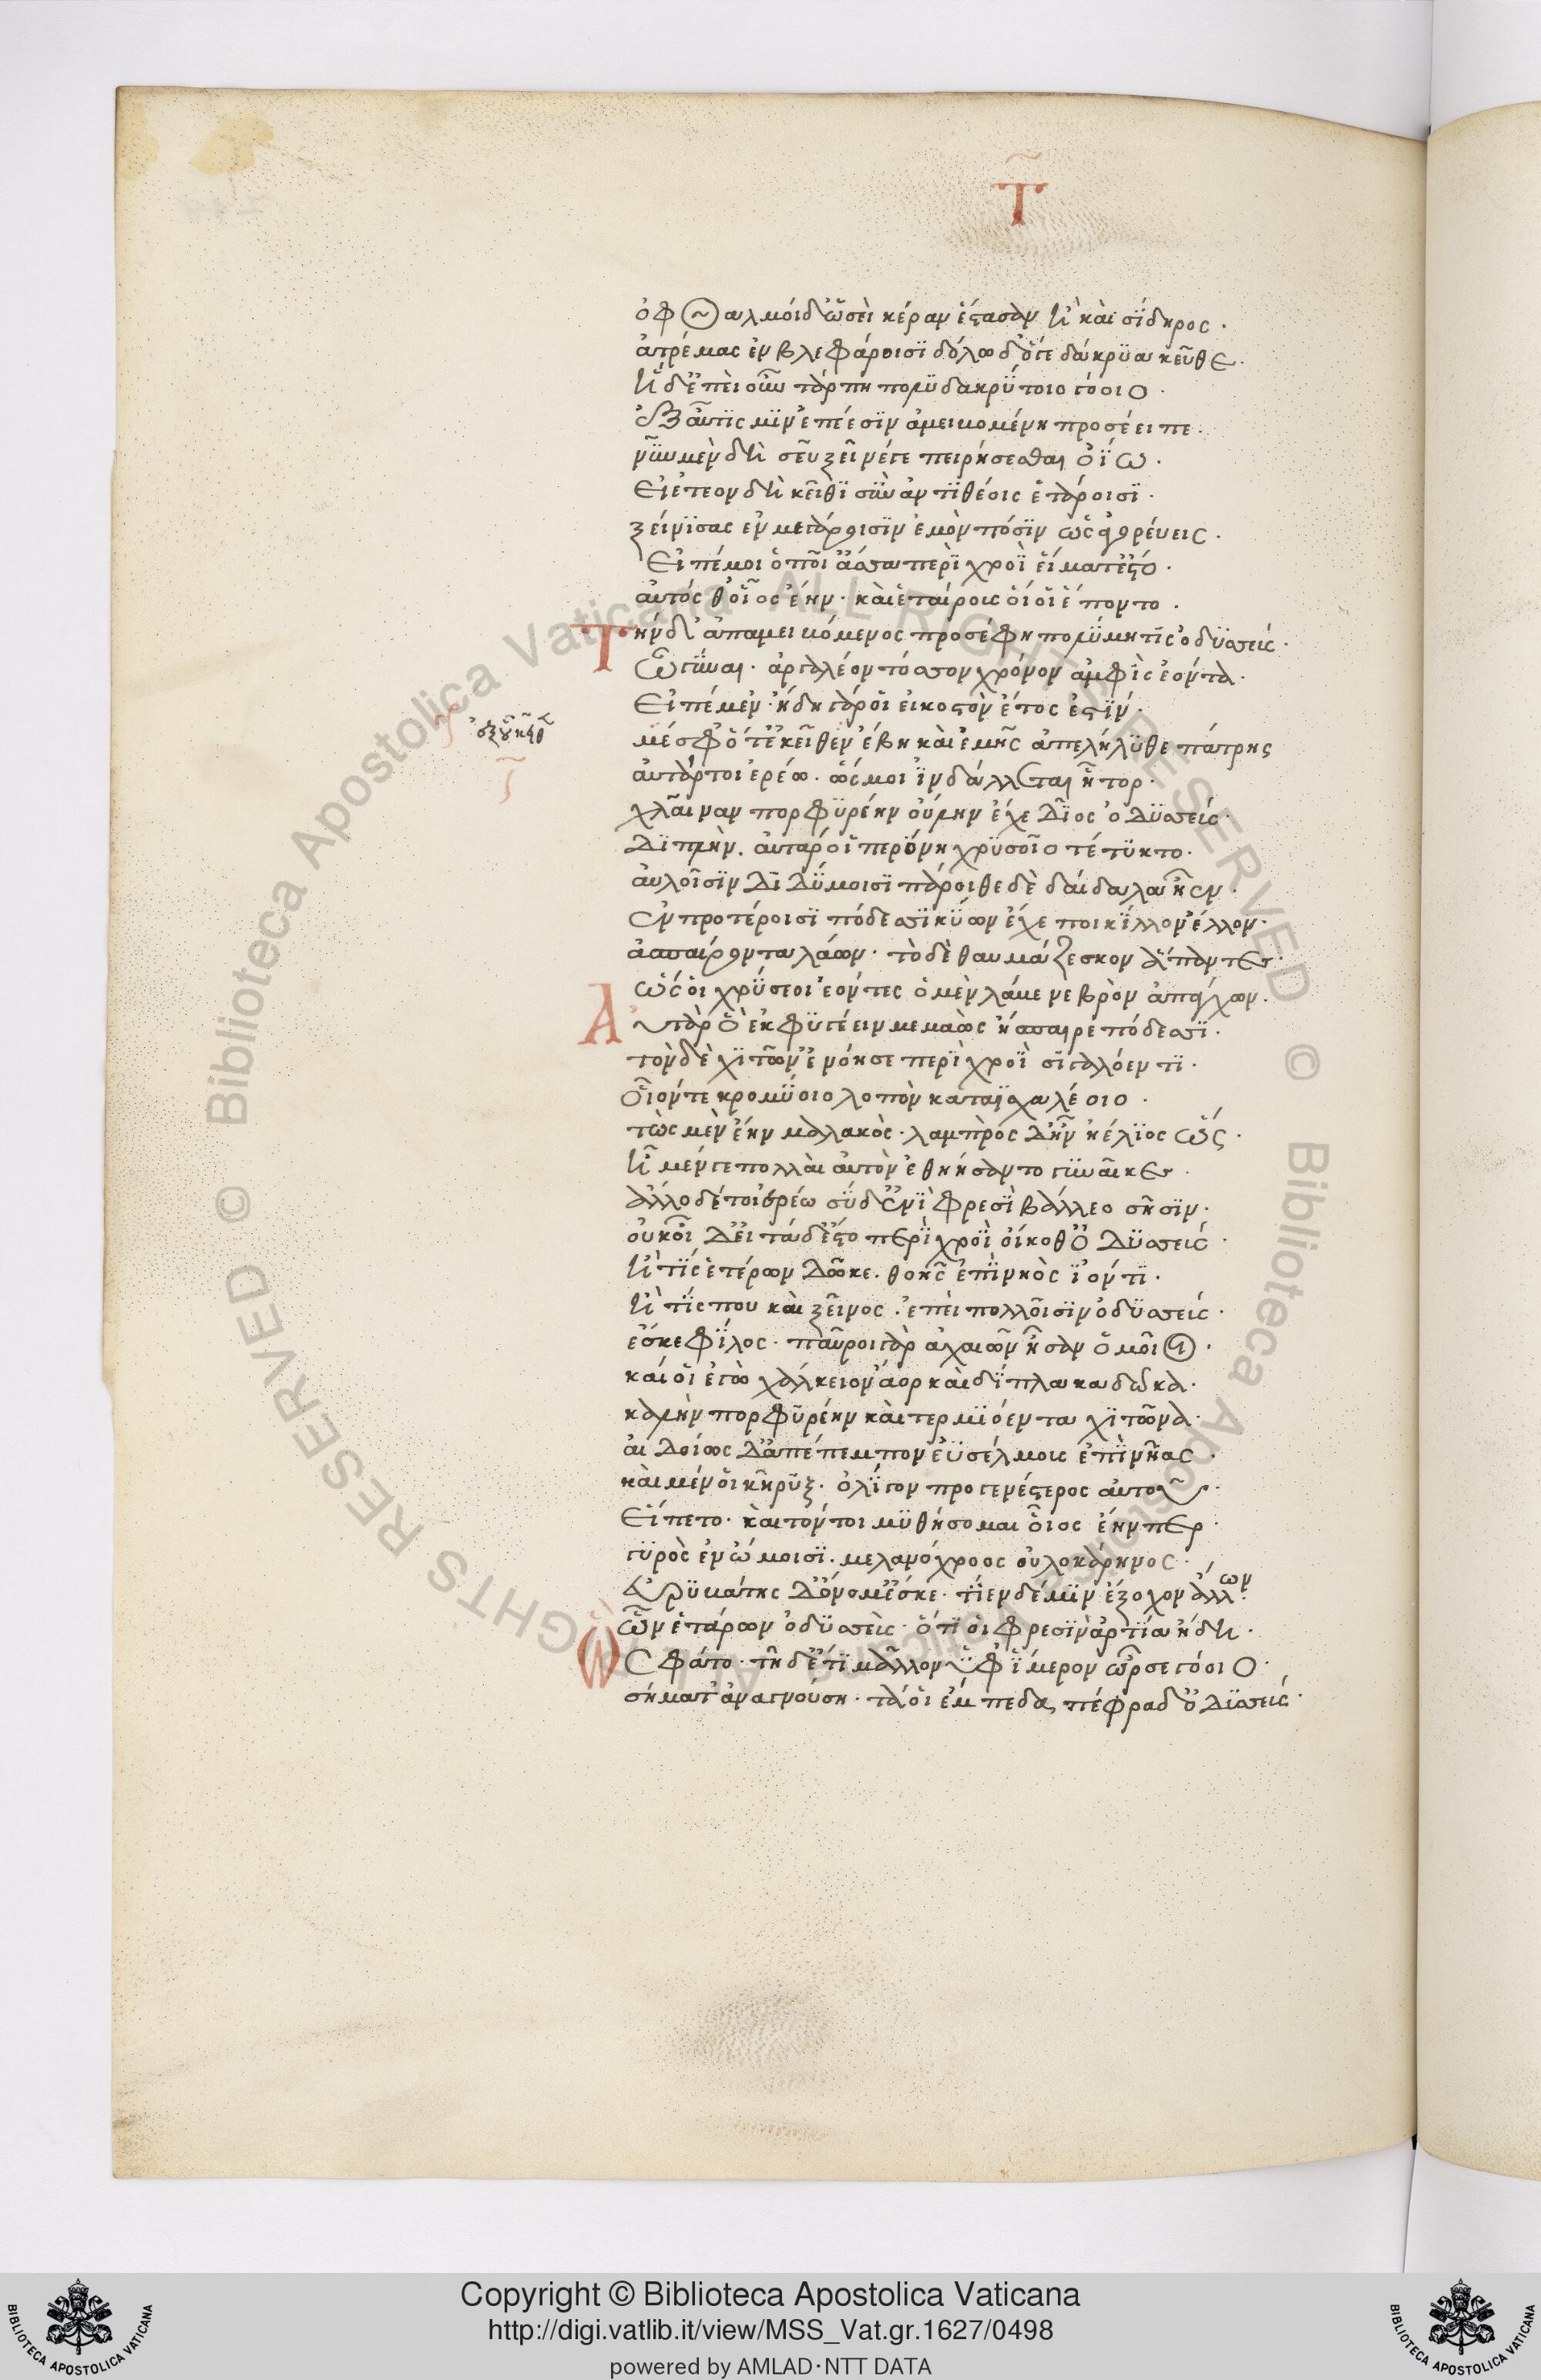 Τ
ὀφθαλμοὶ δ' ὡσεὶ κέρα ἕστασαν ἠὲ καὶ σίδηρος ·
ἀτρέμας ἐν βλεφάροισι δόλω δ' ὅγε δάκρυα κεῦθε ·
ἡ δ' ἐπεὶ οὖν τάρφθη πολυδακρύτοιο γόοιο ·
αὖτίς μιν ἐπέεσιν ἀμειβομένη προσέειπε ·
νῦν μὲν δὴ σεῦ ξεῖνέ γε πειρήσεσθαι οἴω ·
Εἰ ἐτεὸν δὴ κεῖθι σὺν ἀντιθέοις ἑτάροισι ·
ξείνισας ἐν μεγάροισιν ἐμὸν πόσιν ὡς ἀγορεύεις ·
Εἰπέ μοι ὁπποῖ' ἄσσα περὶ χροῒ εἵματ' ἕστο ·
αὐτός θ' οἷος ἔην · καὶ ἑταίρους οἵ οἱ ἕποντο ·
Τὴν δ' ἀπαμειβόμενος προσέφη πολύμητις ὀδυσσεύς ·
Ὦ γύναι · ἀργαλέον τόσσον χρόνον ἀμφὶς ἐόντα ·
Εἰπέμεν · ἤδη γάρ οἱ εἰκοστὸν ἔτος ἐστίν ·
ἐξ οὗ κεῖθ
μέσφ' ὅτ' ἐκεῖθεν ἔβη καὶ ἐμῆς ἀπελήλυθε πάτρης
αὐτάρ τοι ἐρέω · ὥς μοι ἰνδάλλεται ἦτορ ·
χλαῖναν πορφυρέην οὔλην ἔχε δῖος ὀδυσσεύς ·
διπλῆν · αὐτάρ οἱ περόνη χρυσοῖο τέτυκτο ·
αὐλοῖσιν διδύμοισι πάροιθε δὲ δαίδαλα ἦεν ·
ἐν προτέροισι πόδεσσι κύων ἔχε ποικίλλον ἐλλόν ·
ἀσπαίροντα λάων · τὸ δὲ θαυμάζεσκον ἅπαντες ·
ὡς οἱ χρύσεοι ἐόντες ὁ μὲν λάε νεβρὸν ἀπάγχων ·
Αὐτὰρ ὁ ἐκφυγέειν μεμαὼς ἤσπαιρε πόδεσσι ·
τὸν δὲ χιτῶν' ἐνόησε περὶ χροῒ σιγαλόεντι ·
οἷόν τε κρομύοιο λοπὸν κατὰ ἰσχαλέοιο ·
τὼς μὲν ἔην μαλακὸς · λαμπρὸς δ' ἦν ἠέλιος ὥς ·
ἦ μέν γε πολλαὶ αὐτὸν ἐθηήσαντο γυναῖκες ·
ἄλλο δέ τοι ἐρέω σὺ δ' ἐνὶ φρεσὶ βάλλεο σῆσιν ·
οὐκ οἶδ' εἰ τάδ' ἕστο περὶ χροῒ οἴκοθ' ὀδυσσεύς ·
ἤ τις ἑτάρων δῶκε · θοῆς ἐπὶ νηὸς ἰόντι ·
ἤ τίς που καὶ ξεῖνος · ἐπεὶ πολλοῖσιν ὀδυσσεύς ·
ἔσκε φίλος · παῦροι γὰρ ἀχαιῶν ἦσαν ὁμοῖοι ·
καί οἱ ἐγὼ χάλκειον ἄορ καὶ δίπλακα δῶκα ·
καλὴν πορφυρέην καὶ τερμιόεντα χιτῶνα ·
αἰδοίως δ' ἀπέπεμπον ἐϋσέλμου ἐπὶ νηὸς ·
καὶ μέν οἱ κῆρυξ · ὀλίγον προγενέστερος αὐτοῦ ·
Εἵπετο · καὶ τόν τοι μυθήσομαι οἷος ἔην περ ·
γυρὸς ἐν ὤμοισι · μελανόχροος οὐλοκάρηνος ·
εὐρυβάτης δ' ὄνομ' ἔσκε · τίεν δέ μιν ἔξοχον ἄλλων ·
ὧν ἑτάρων ὀδυσσεύς · ὅτι οἱ φρεσὶν ἄρτια ἤδη ·
Ὣς φάτο · τῇ δ' ἔτι μᾶλλον ὑφ' ἵμερον ὦρσε γόοιο ·
σήματ' ἀναγνούση · τά οἱ ἔμπεδα πέφραδ' ὀδυσσεύς ·
Copyright © Biblioteca Apostolica Vaticana
http://digi.vatlib.it/view/MSS_Vat.gr.1627/0498
powered by AMLAD·NTT DATA
BIBLIOTECA APOSTOLICA VATICANA
BIBLIOTECA APOSTOLICA VATICANA
© Biblioteca Apostolica Vaticana ALL RIGHTS RESERVED
© Biblioteca Apostolica Vaticana ALL RIGHTS RESERVED